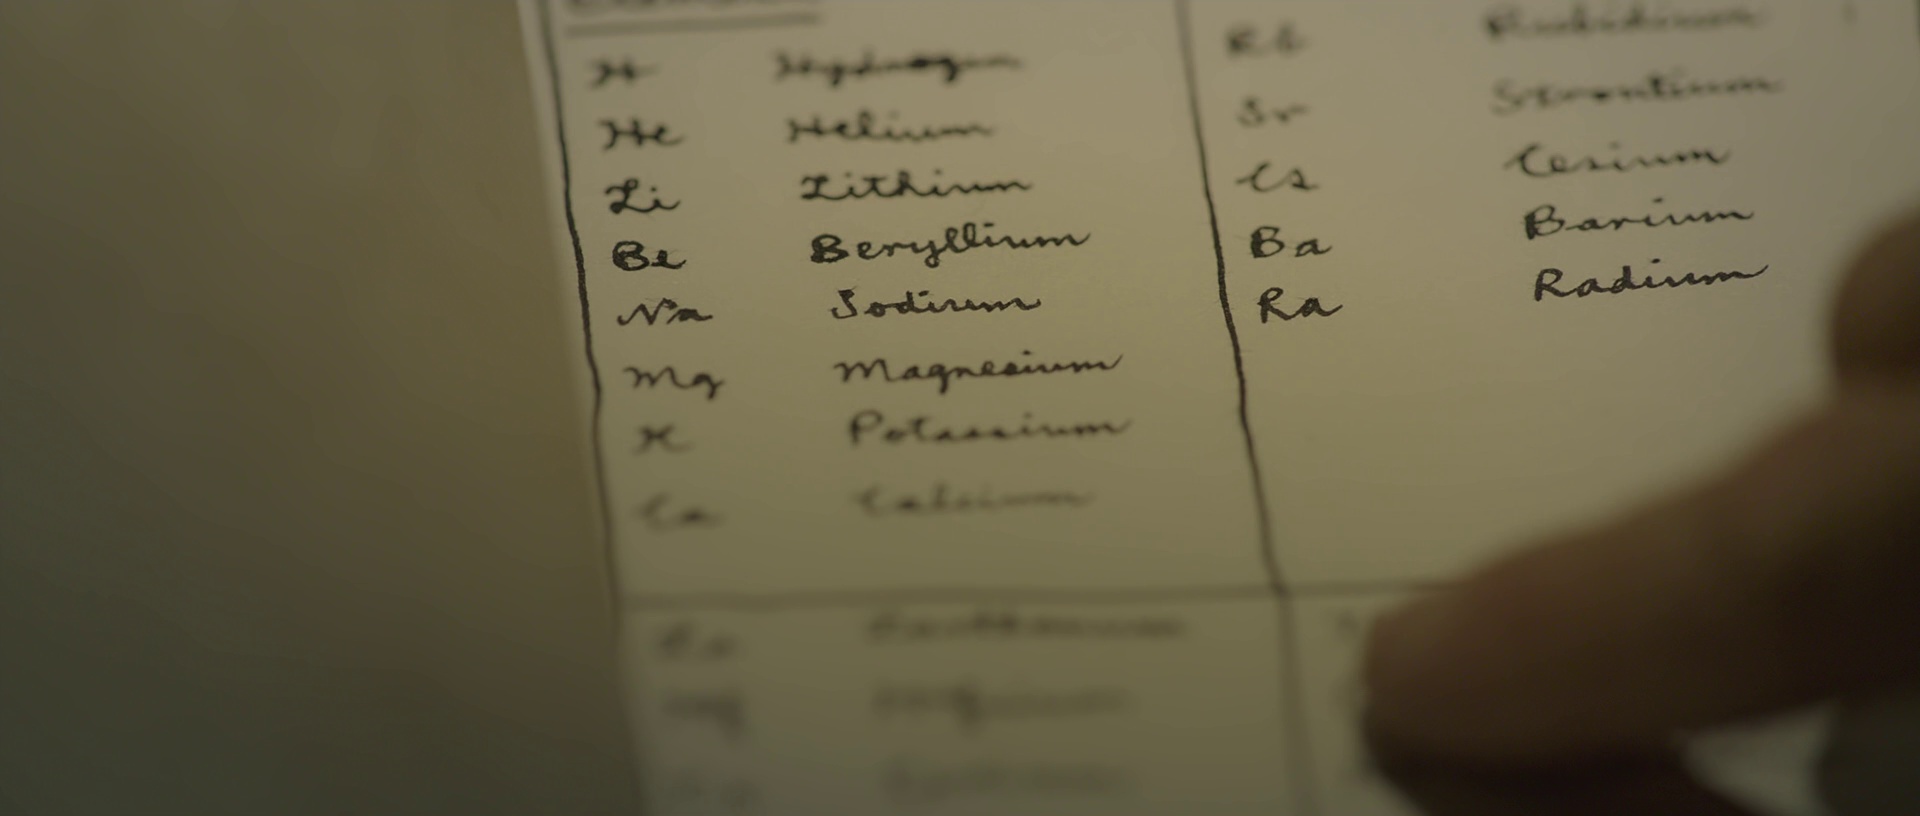 H Hydrogen
He Helium
Li Lithium
Be Beryllium
Na Sodium
Mg Magnesium
K Potassium
Ca Calcium
Rb Rubidium
Sr Strontium
Cs Cesium
Ba Barium
Ra Radium